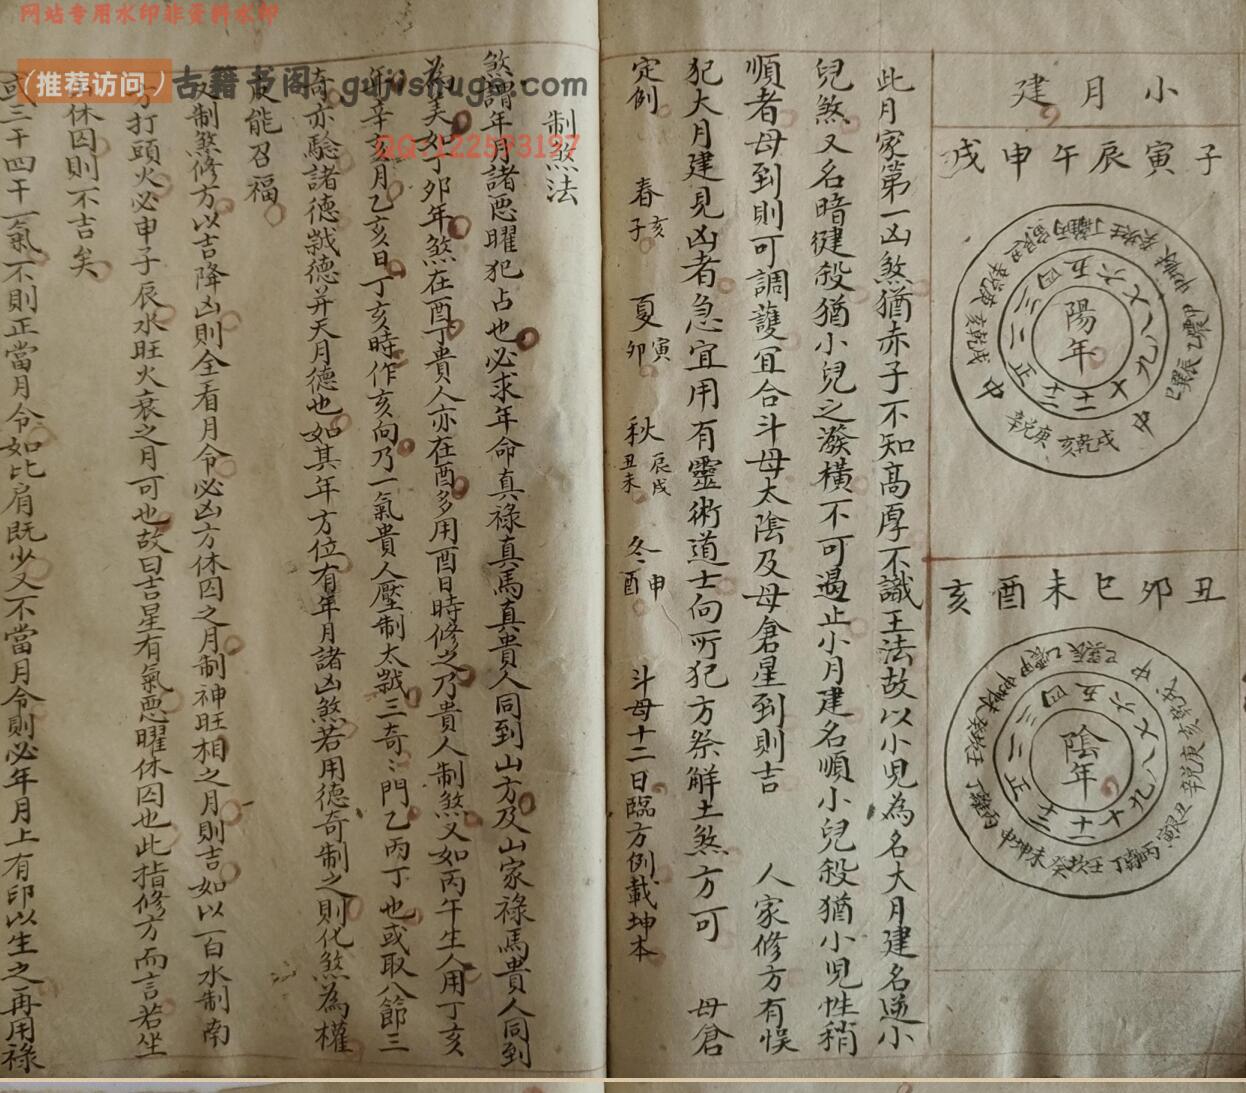 网站专用水印非资料水印
（推荐访问）古籍书阁：gujishuge.com
QQ:122593197
小月建
子寅辰午申戌
陽年
正二三四五六七八九十十一十二
中
丑卯巳未酉亥
陰年
正二三四五六七八九十十一十二
中
此月家第一凶煞猶赤子不知高厚不識王法故以小兒為名大月建名逆小
兒煞又名暗建殺猶小兒之潑橫不可遏止小月建名順小兒殺猶小兒性稍
順者母到則可調護宜合斗母太陰及母倉星到則吉 人家修方有悞
犯大月建見凶者急宜用有靈術道士向所犯方祭解土煞方可 母倉
定例 春亥子 夏寅卯 秋辰戌丑未 冬申酉 斗母十二日臨方例載坤本
制煞法
煞謂年月諸惡曜犯占也必求年命真祿真馬真貴人同到山方及山家祿馬貴人同到
為美如丁卯年煞在酉丁貴人亦在酉多用酉日時修之乃貴人制煞又如丙午生人用丁亥
年辛亥月乙亥日丁亥時作亥向乃一氣貴人壓制太歲三奇三門乙丙丁也或取八節三
奇亦驗諸德歲德并天月德也如其年方位有年月諸凶煞若用德奇制之則化煞為權
反能召福
制煞修方以吉降凶則全看月令必凶方休囚之月制神旺相之月則吉如以一白水制南
方打頭火必申子辰水旺火衰之月可也故曰吉星有氣惡曜休囚也此指修方而言若坐
休囚則不吉矣
或三干四干一氣不則正當月令如比肩既少又不當月令則必年月上有印以生之再用祿